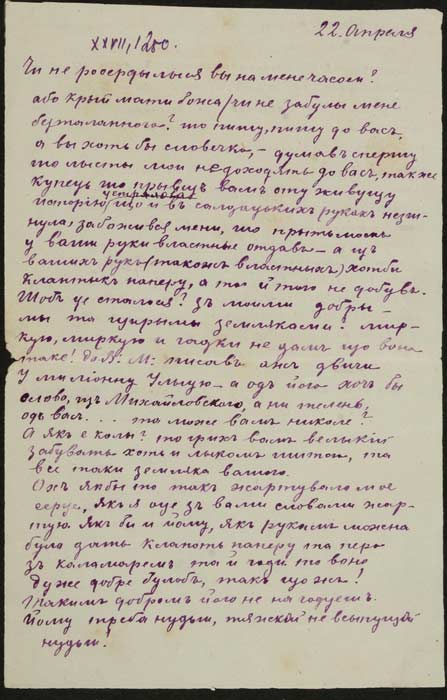 22. Апреля
XXVII, 1250.
Чи не росердылыся вы на мене часом?
або крый мати божа/чи не забулы мене
безталанного? що пишу, пишу до васъ,
а вы хоть бы словечко, – думавъ сперту
що лысты мои недоходять до васъ, также
купець що прывизъ вамъ оту живущу
и въ салдацькихъ рукахъ незги-
нула/ забожився мени, що прытьмомъ
у ваши руки властные отдавъ – а изъ
вашихъ рукъ (такожъ властныхъ) хотьби
клаптыкъ паперу, а то й того не добувъ.
Щобъ це сталося? зъ моими добры-
мы та щирымы земляками? мир-
кую, миркую и гадки не дамъ що воно
таке! До В. М: писавъ ажъ двичи
у милионну улыцю – а одъ його хочъ бы
слово, изъ Михайловского, а ни телень,
одъ васъ . . . та може вамъ николе?
А якъ е колы? то грихъ вамъ великий
забувать хоть и лыкомъ шитого, та
все таки земляка вашого.
Охъ якбы то такъ жартувало мое
серце, якъ я оце зъ вами словами жар-
тую якъ би й йому, якъ рукамъ можна
було дать клапоть паперу та перо
зъ каламаремъ та й годи то воно
дуже добре булобъ, такъ що жъ!
Такимъ добромъ його не нагодуешъ.
Йому треба нудьги, тяжкой не всыпущой
нудьги!